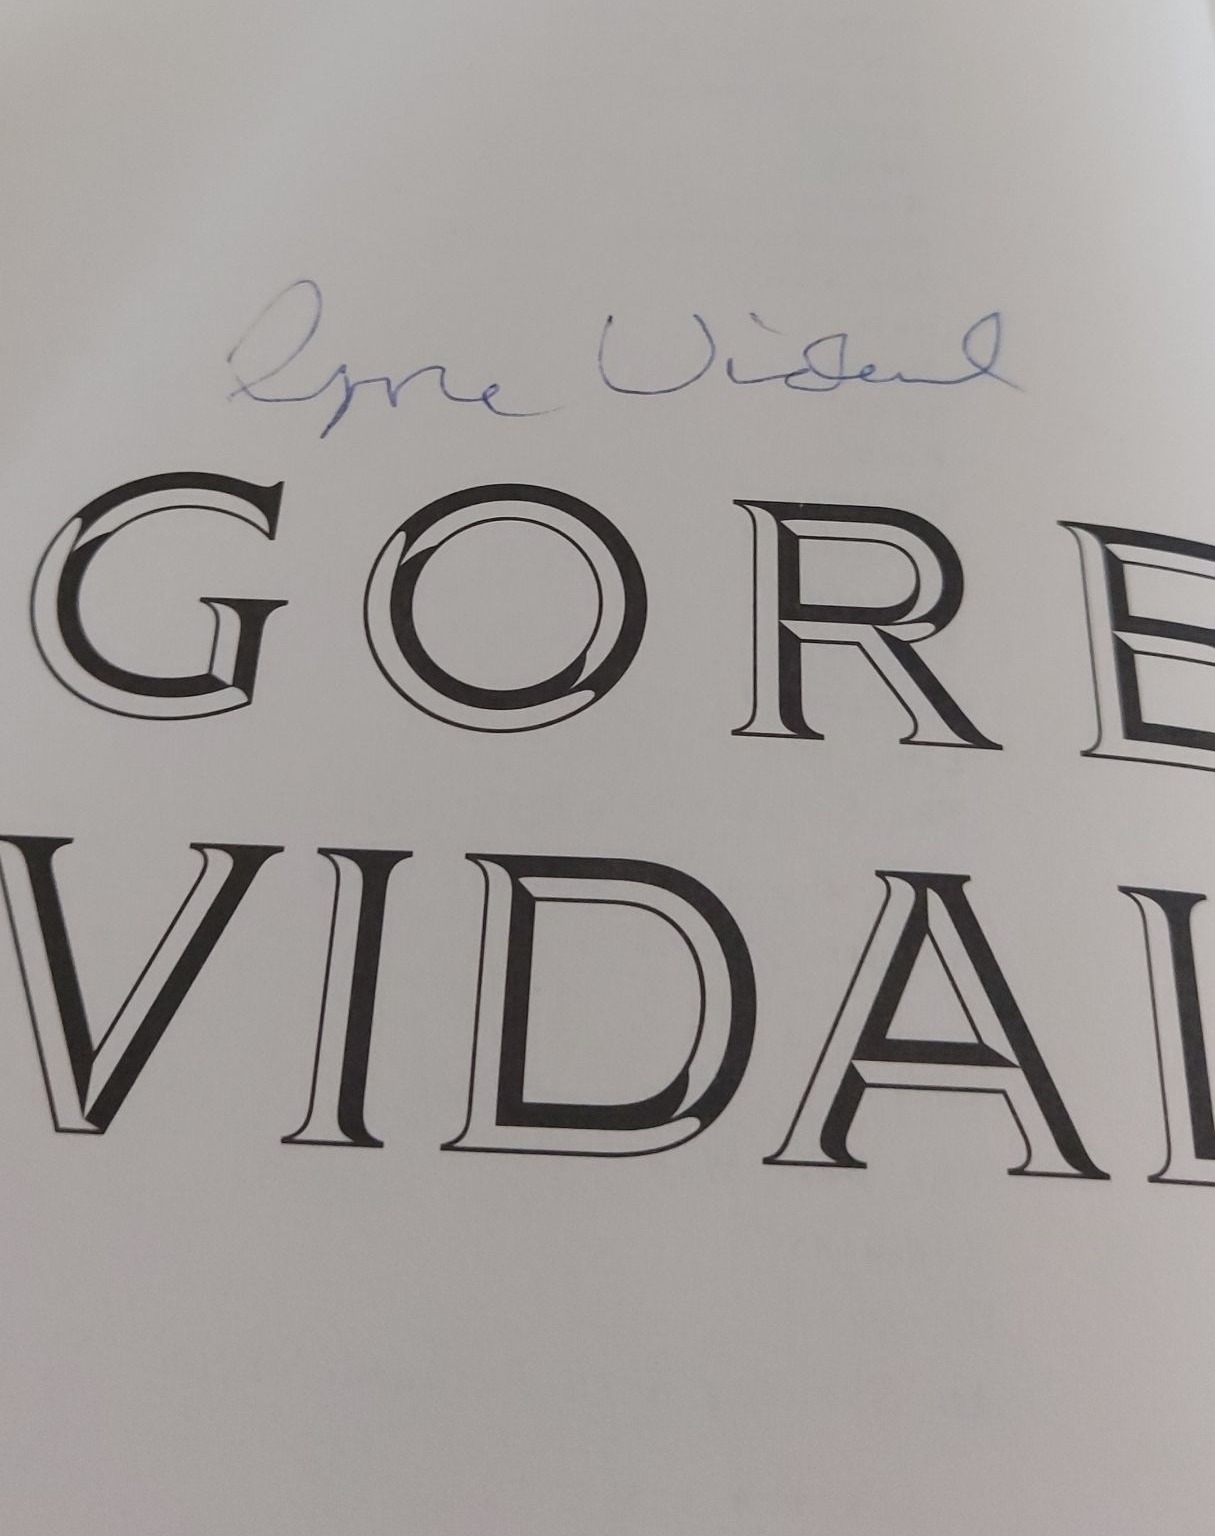 Gore Vidal
GORE
VIDAL